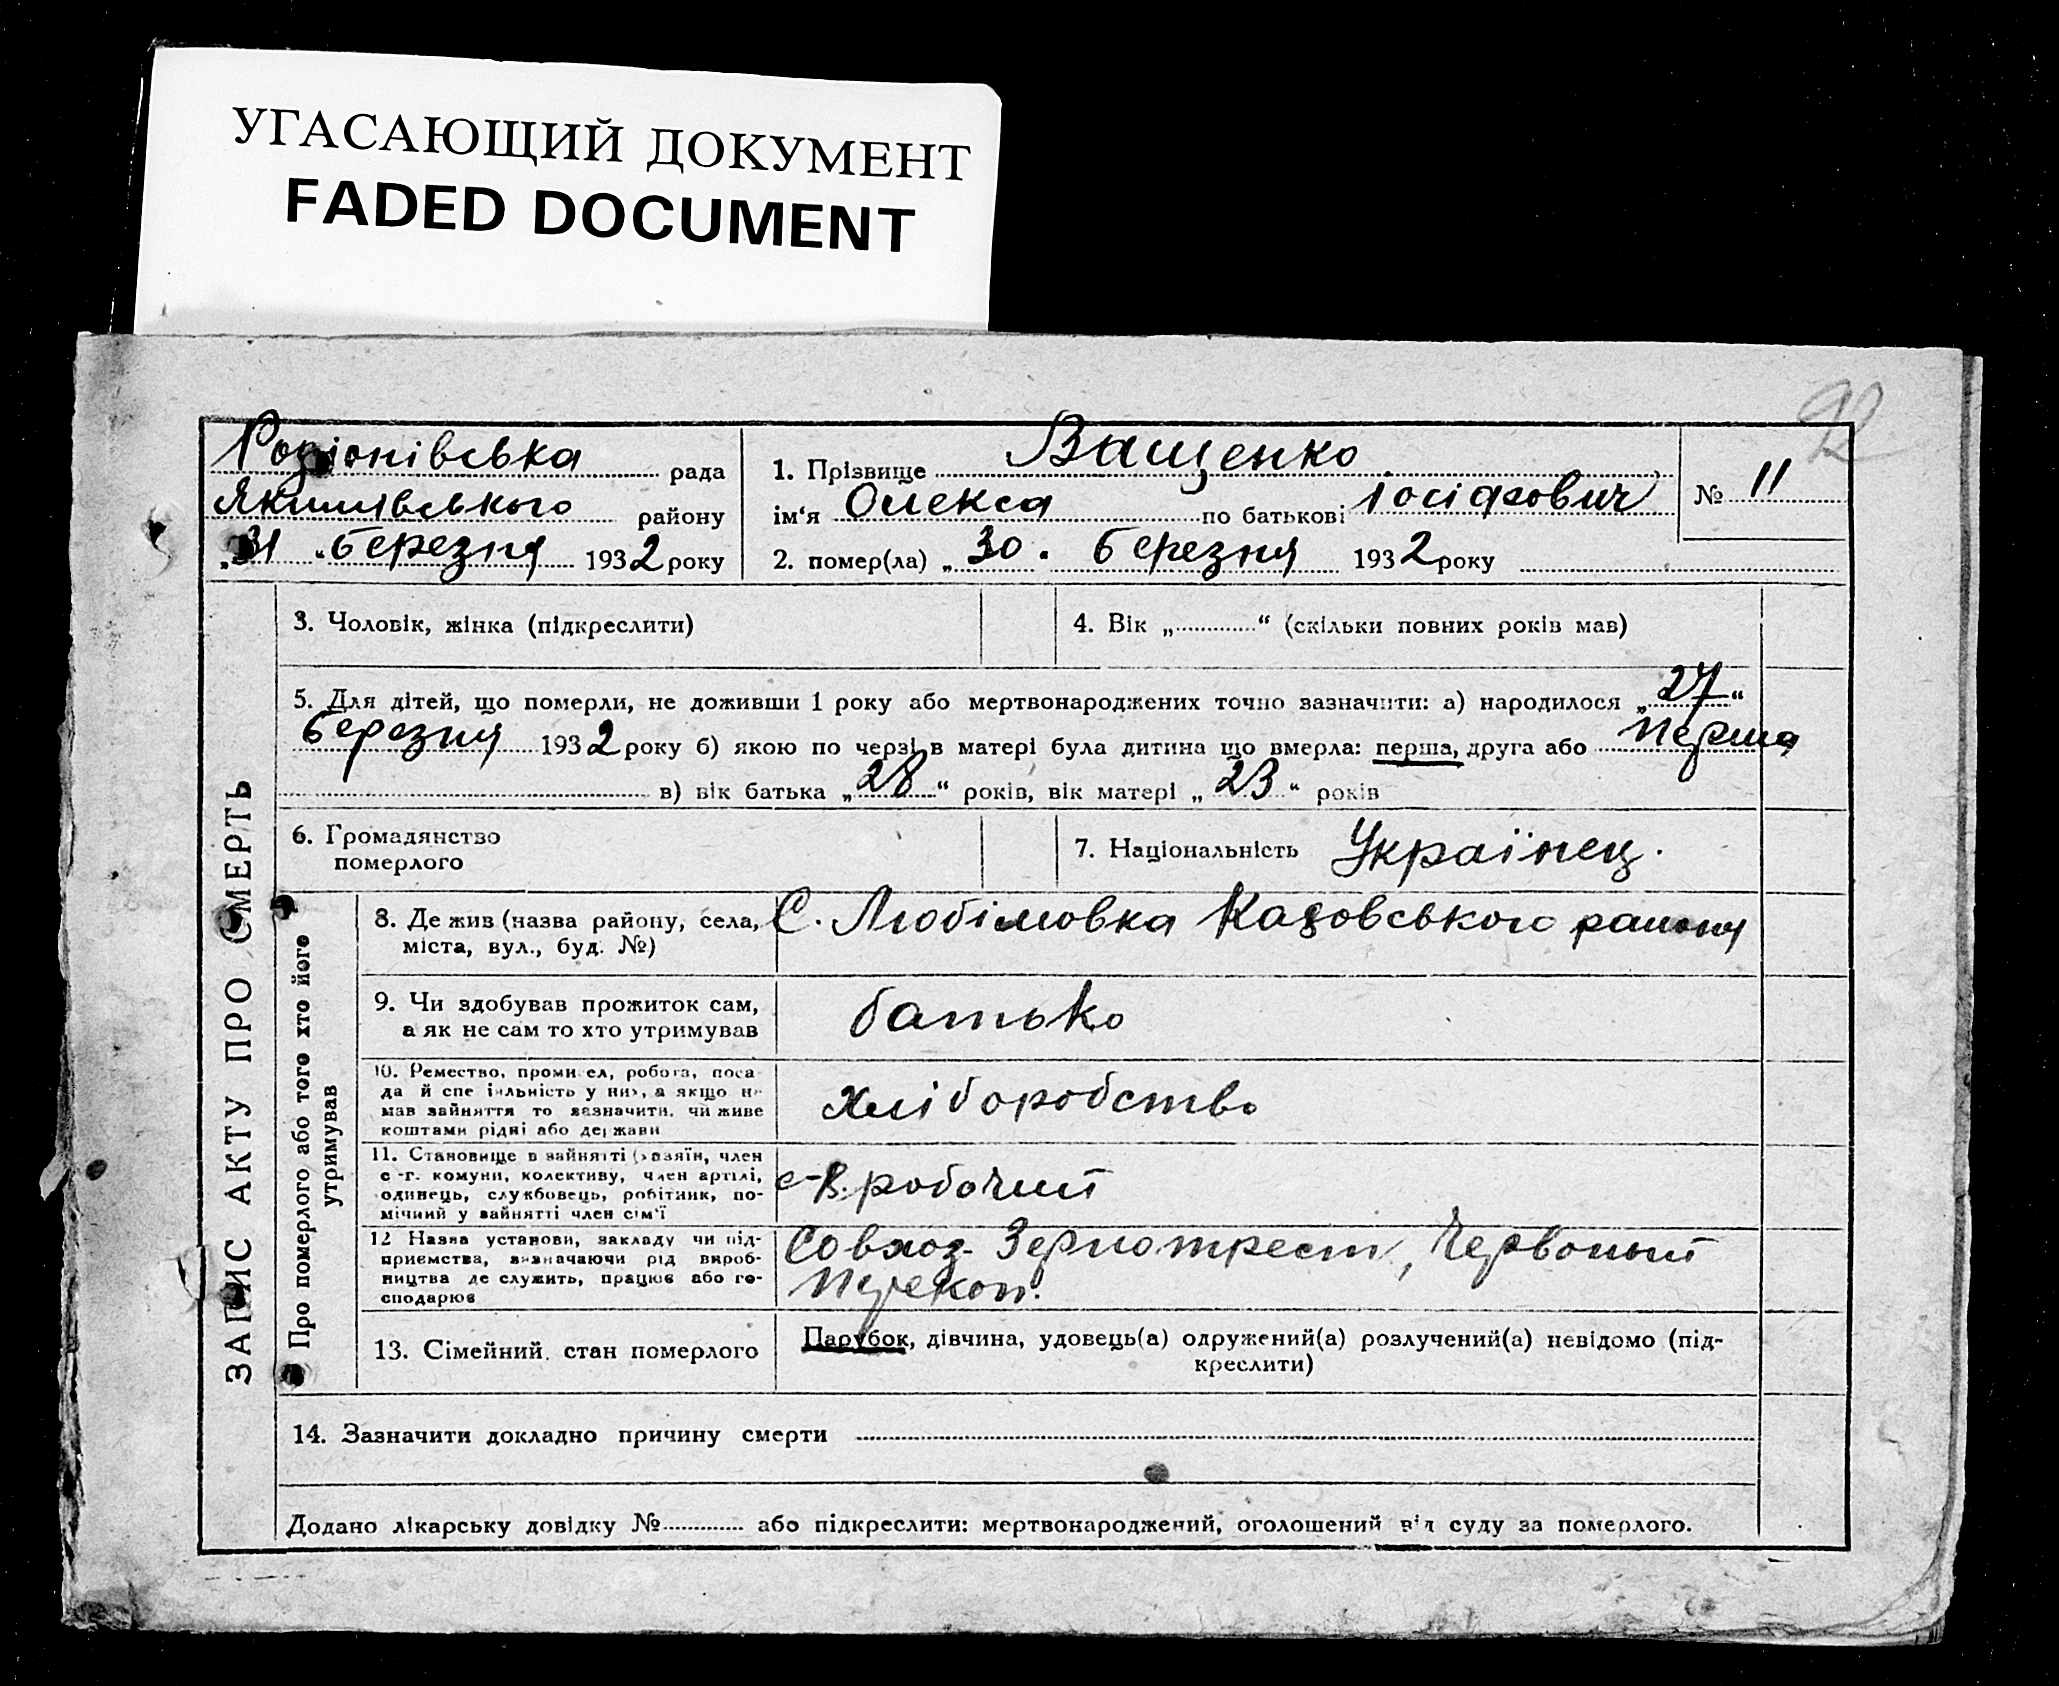 УГАСАЮЩИЙ ДОКУМЕНТ
FADED DOCUMENT
92
Родіонівська рада
Якимівського району
„31“ березня 1932 року
1. Прізвище Ващенко
ім‘я Олекса по батькові Іосіфович
2. помер(ла) „30. березня 1932 року
№ 11
ЗАПИС АКТУ ПРО СМЕРТЬ
3. Чоловік, жінка (підкреслити)
4. Вік „............“ (скільки повних років мав)
5. Для дітей, що померли, не доживши 1 року або мертвонароджених точно зазначити: а) народилося „27“
березня 1932 року б) якою по черзі в матері була дитина що вмерла: перша, друга або перша
в) вік батька „28“ років, вік матері „23“ років
6. Громадянство
померлого
7. Національність Українец.
Про померлого або того хто його
утримував
8. Де жив (назва району, села,
міста, вул., буд. №)
С. Любімовка району
9. Чи здобував прожиток сам,
а як не сам то хто утримував
батько
10. Ремество, промисел, робота, поса-
да й спеціяльність у них, а якщо не
мав зайняття то зазначити, чи живе
коштами рідні або держави
хліборобство
11. Становище в зайнятті (хазяїн, член
с.-г. комуни, колективу, член артілі,
одинець, службовець, робітник, по-
мічний у зайнятті член сім‘ї
робочий
12 Назва установи, закладу чи під-
приємства, визначаючи рід вироб-
ництва де служить, працює або го-
сподарює
Совхоз Зернотрест, Червоный
Перекоп.
13. Сімейний стан померлого
Парубок, дівчина, удовець(а) одружений(а) розлучений(а) невідомо (під-
креслити)
14. Зазначити докладно причину смерти
Додано лікарську довідку №............ або підкреслити: мертвонароджений, оголошений від суду за померлого.